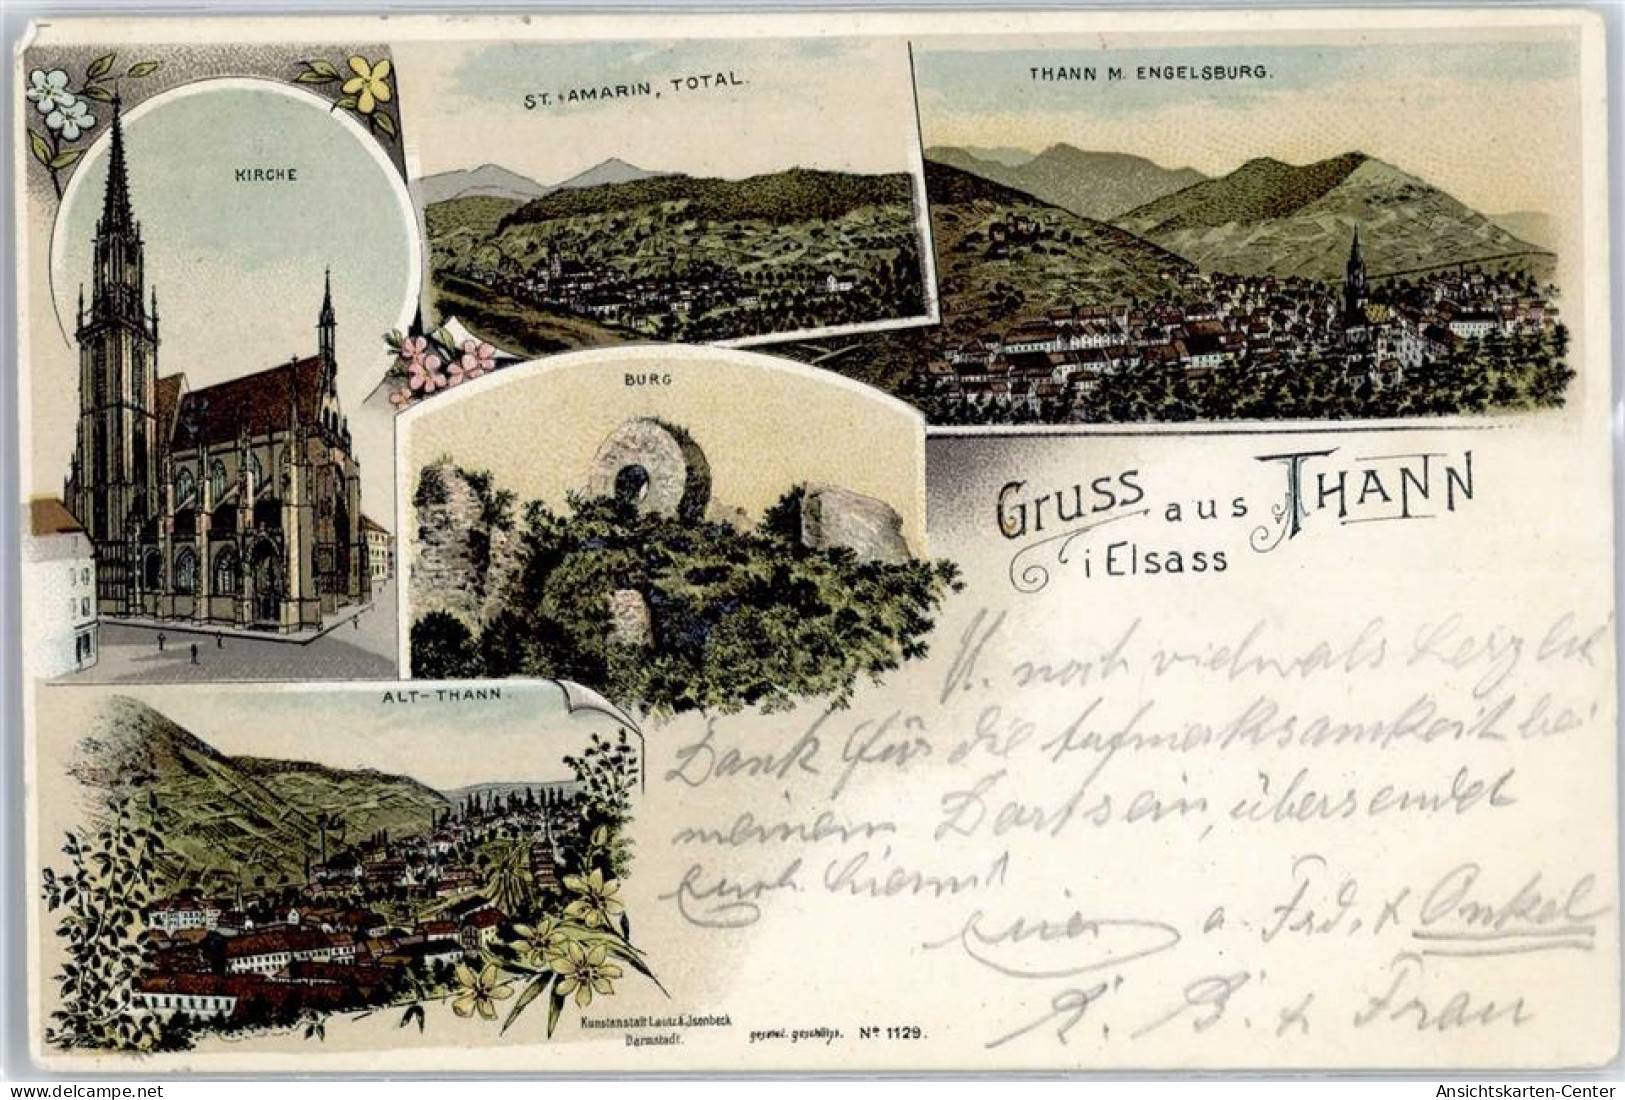 KIRCHE
ST. AMARIN, TOTAL.
THANN M. ENGELSBURG.
BURG
ALT-THANN.
Gruss aus THANN
i Elsass
noch vielmals herzlich
Dank für die Aufmerksamkeit bei
meinem Dortsein, übersendet
Euch hiermit
Euer a. Frd. & Onkel
K. B. & Frau
Kunstanstalt Lautz & Isenbeck
Darmstadt.
gesetzl. geschützt. No 1129.
Ansichtskarten-Center